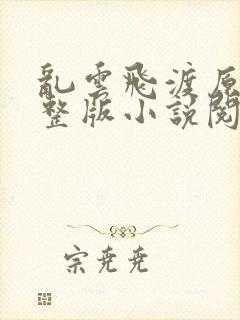 亂雲飛渡原
整版小說閱
宗堯堯